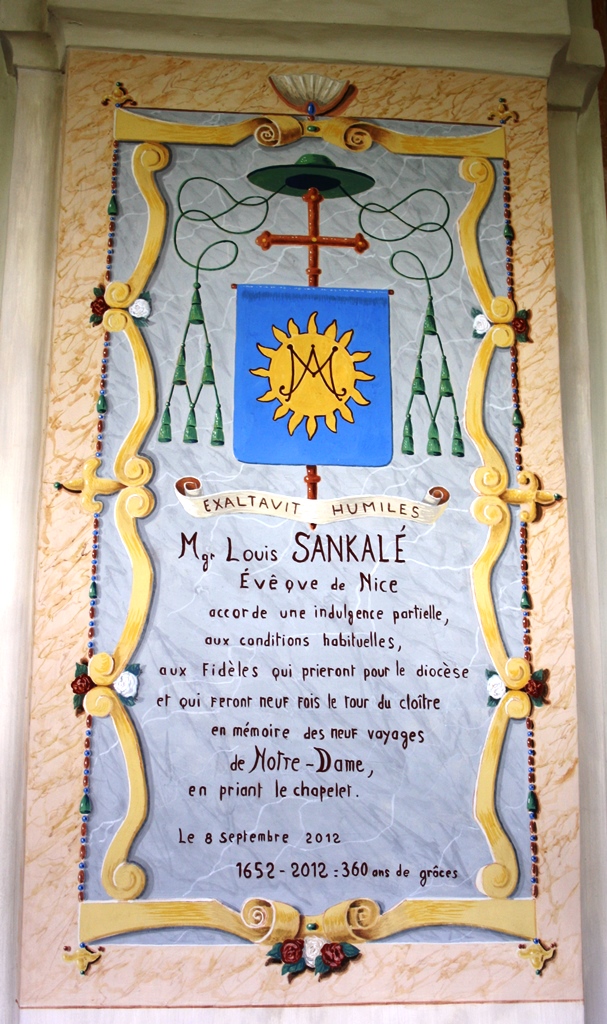 EXALTAVIT HUMILES
Mgr Louis SANKALÉ
Évêque de Nice
accorde une indulgence partielle,
aux conditions habituelles,
aux Fidèles qui prieront pour le diocèse
et qui feront neuf fois le tour du cloître
en mémoire des neuf voyages
de Notre-Dame,
en priant le chapelet.
Le 8 Septembre 2012
1652-2012 = 360 ans de grâces